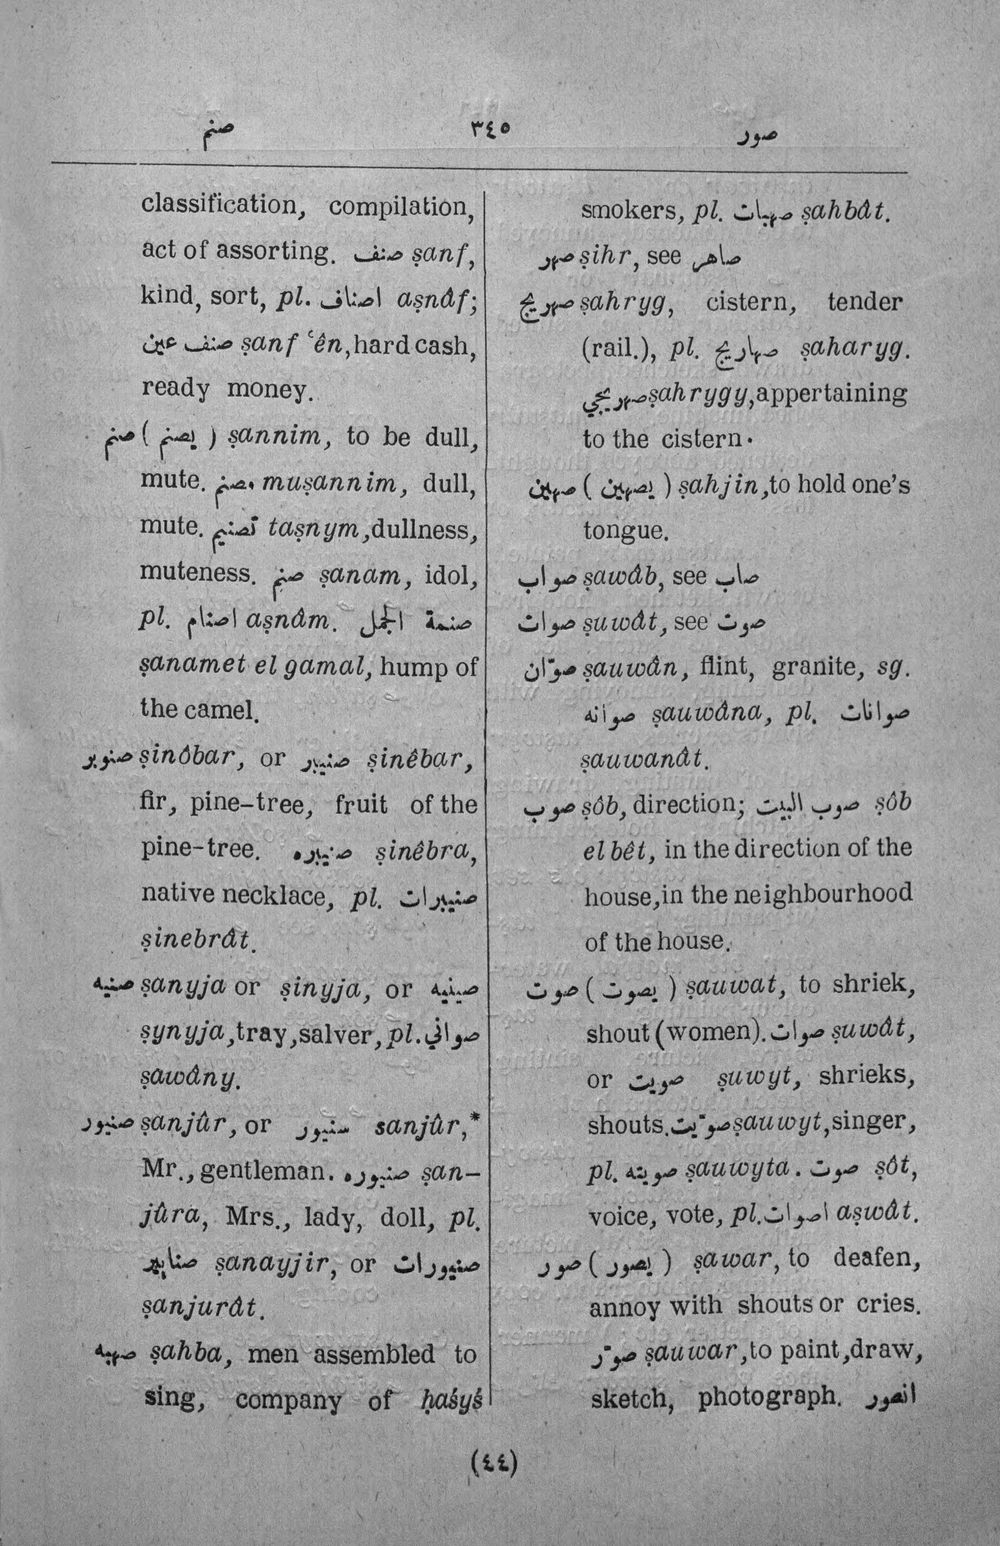 صنم ٣٤٥ صور
classification, compilation,
act of assorting. صنف ṣanf,
kind, sort, pl. اصناف aṣnâf;
صنف عين ṣanf ʿên, hard cash,
ready money.
صنم ( يصنم ) ṣannim, to be dull,
mute. مصنم muṣannim, dull,
mute. تصنيم taṣnym, dullness,
muteness. صنم ṣanam, idol,
pl. اصنام aṣnâm. صنمة الجمل
ṣanamet el gamal, hump of
the camel.
صنوبر ṣinôbar, or صنيبر ṣinêbar,
fir, pine-tree, fruit of the
pine-tree. صنيبره ṣinêbra,
native necklace, pl. صنيبرات
ṣinebrât.
صنيه ṣanyja or ṣinyja, or صينيه
ṣynyja, tray, salver, pl. صواني
ṣawâny.
صنيور ṣanjûr, or سنيور sanjûr,*
Mr., gentleman. صنيوره ṣan-
jûra, Mrs., lady, doll, pl.
صنايير ṣanayjir, or صنيورات
ṣanjurât.
صهبه ṣahba, men assembled to
sing, company of ḥaśyś
smokers, pl. صهبات ṣahbât.
صهر ṣihr, see صاهر
صهريج ṣahryg, cistern, tender
(rail.), pl. صهاريج ṣaharyg.
صهريجي ṣahrygy, appertaining
to the cistern.
صهين ( يصهين ) ṣahjin, to hold one's
tongue.
صواب ṣawâb, see صاب
صوات ṣuwât, see صوت
صوّان ṣauwân, flint, granite, sg.
صوانه ṣauwâna, pl. صوانات
ṣauwanât.
صوب ṣôb, direction; صوب البيت ṣôb
el bêt, in the direction of the
house, in the neighbourhood
of the house.
صوت ( يصوت ) ṣauwat, to shriek,
shout (women). صوات ṣuwât,
or صويت ṣuwyt, shrieks,
shouts. صوّيت ṣauwyt, singer,
pl. صويته ṣauwyta. صوت ṣôt,
voice, vote, pl. اصوات aṣwât.
صور ( يصور ) ṣawar, to deafen,
annoy with shouts or cries.
صوّر ṣauwar, to paint, draw,
sketch, photograph. انصور
(٤٤)